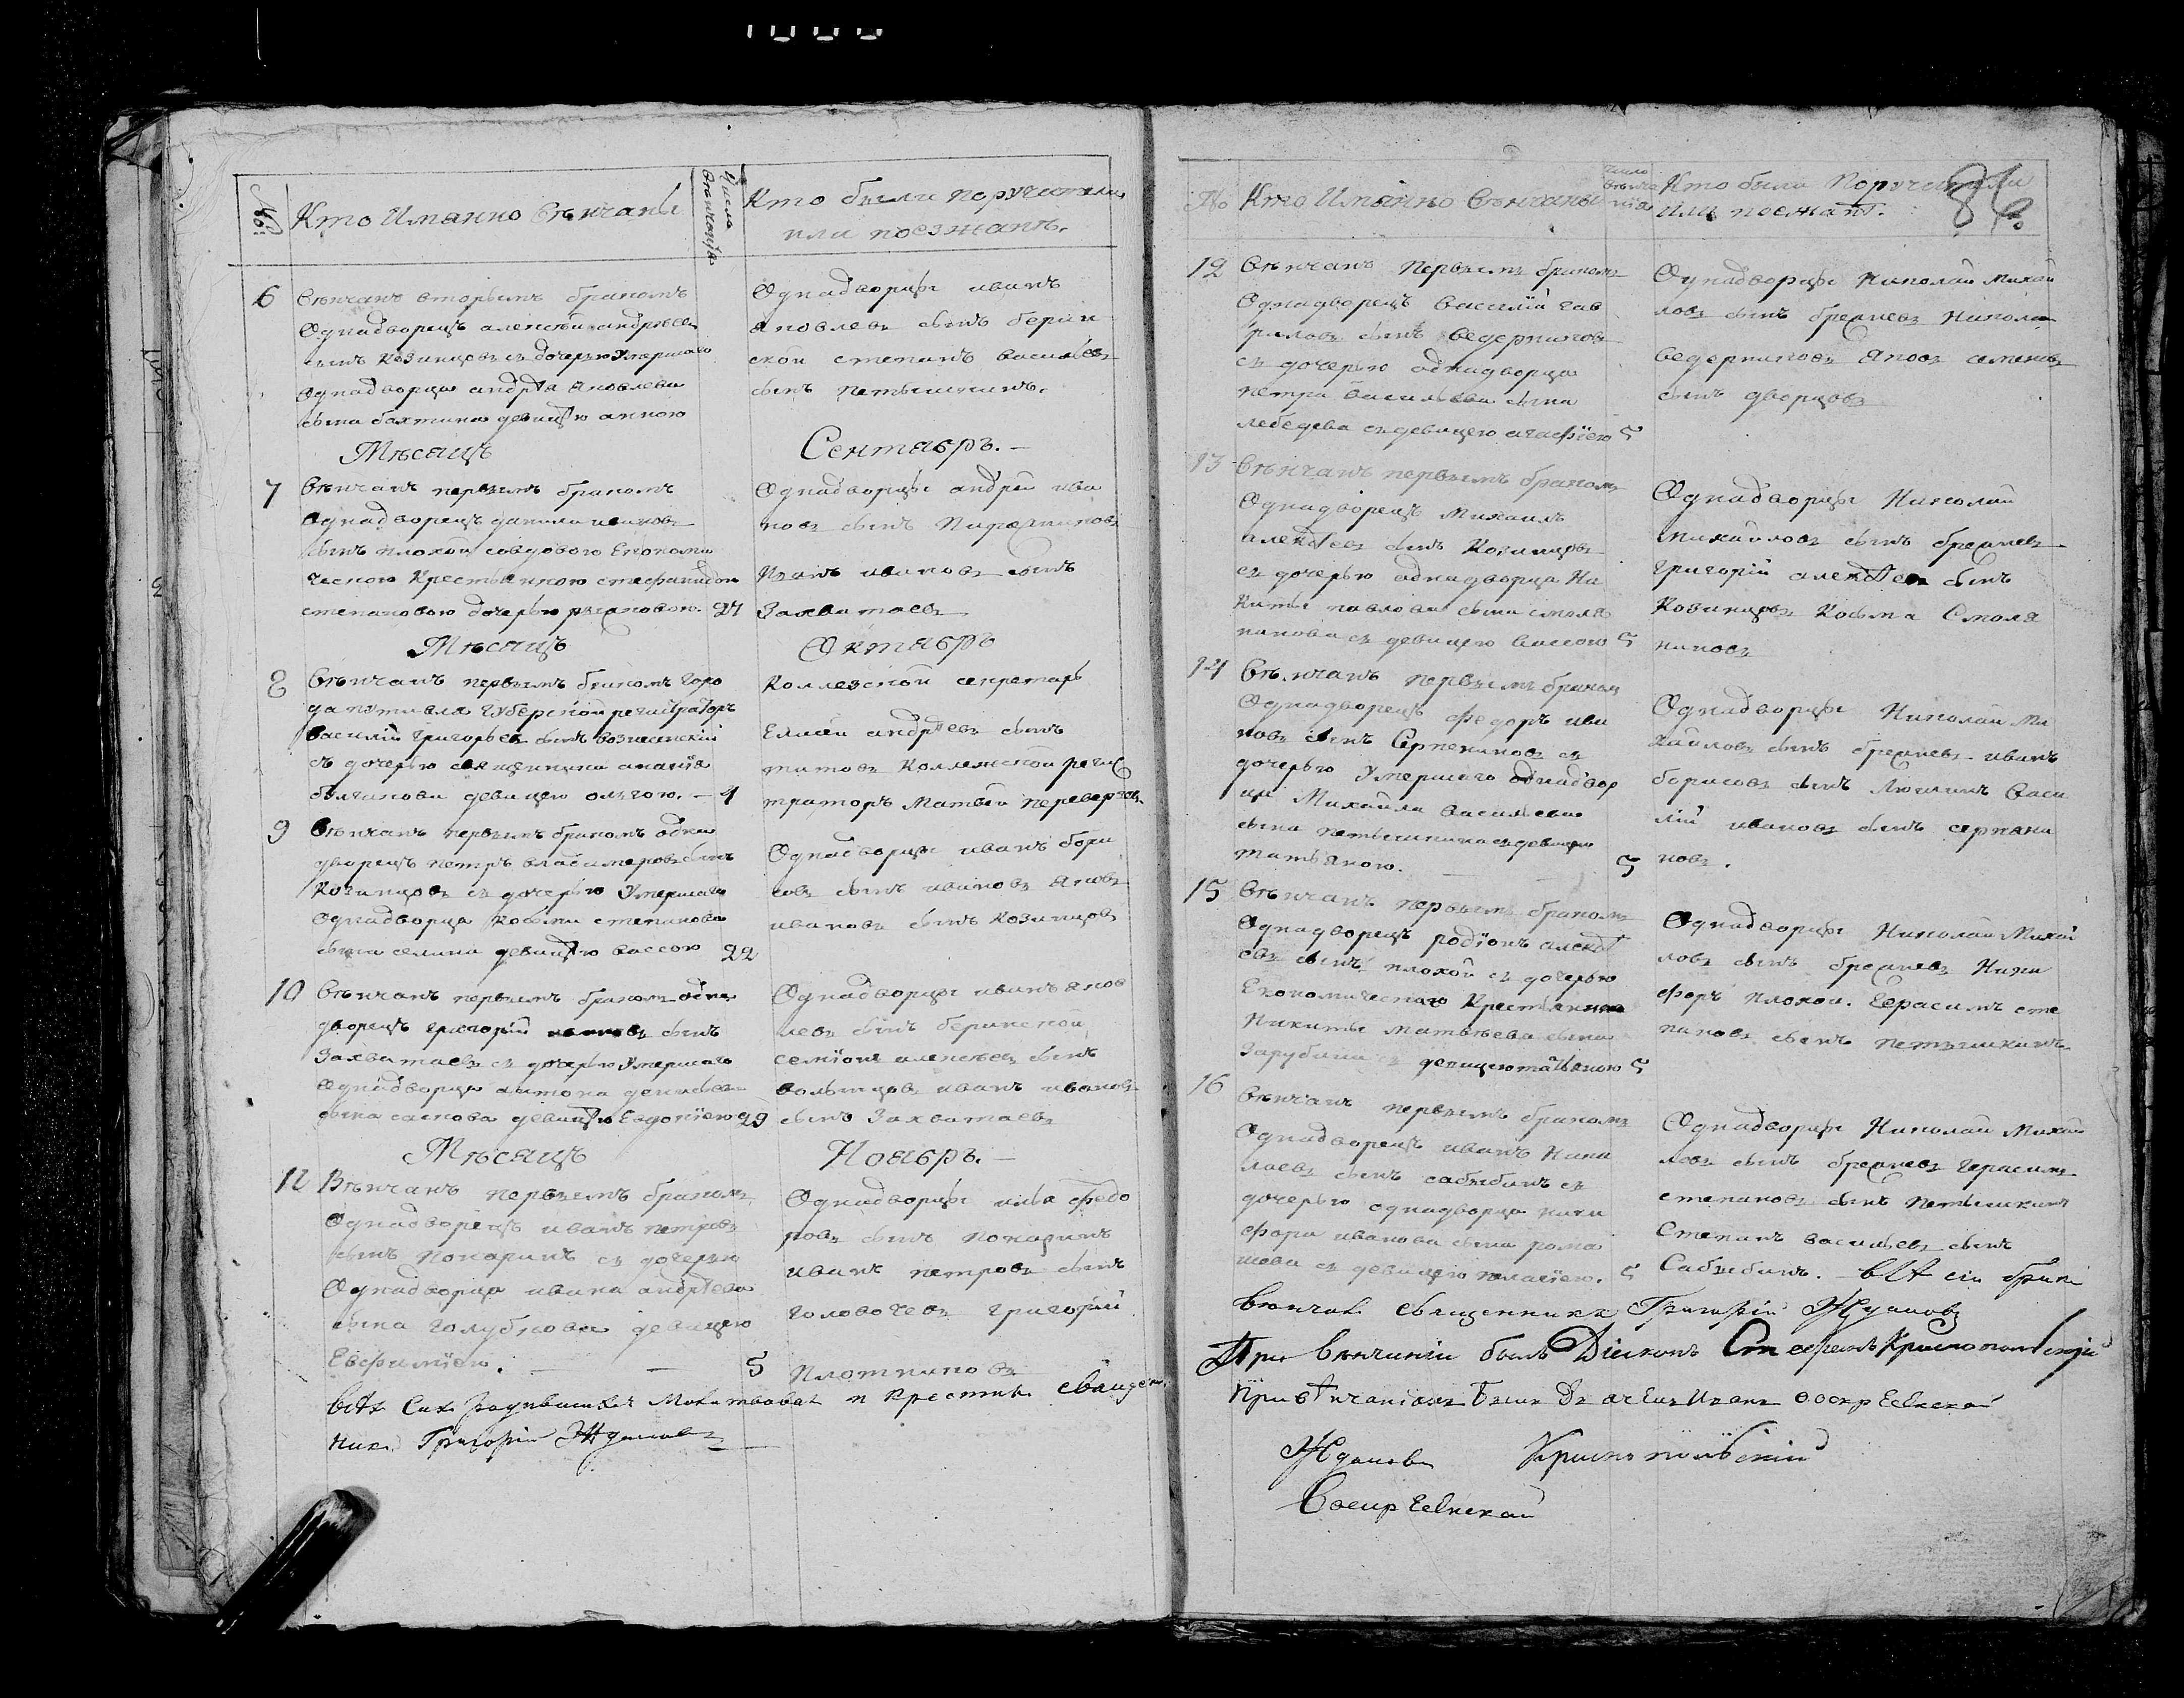 №:
Кто Имянно Вѣнчаны
Число вѣнчанія
Кто были поручители
или поезжанѣ.
6
Вѣнчанъ вторымъ бракомъ
Однадворецъ алексѣй андрѣевъ
сынъ Козинцовъ съ дочерью Умершаго
Однадворца андрѣя Яковлева
сына бахтина девицею анною
Однадворцы иванъ
Яковлевъ сынъ берин
ской степанъ васильевъ
сынъ петышкинъ.
Мѣсяцъ
Сентябрь.
7
Вѣнчанъ первымъ бракомъ
Однадворецъ данила ивановъ
сынъ плохой совдовою Економи
ческою Крестьянкою стефанидою
степановою дочерью русановою. 27
Однадворцы андрей ива
новъ сынъ
Иванъ ивановъ сынъ
Захватаевъ
Мѣсяцъ
Октябрь
8
Вѣнчанъ первымъ бракомъ горо
да путивля Губерской регистраторъ
василій григорьевъ сынъ вознесенскій
съ дочерью священника ананія
булгакова девицею ольгою. — 4
Коллезской секретарь
Елисей андрѣевъ сынъ
титовъ Коллежской регис
траторъ Матвей переверзевъ
9
Вѣнчанъ первымъ бракомъ одна
дворецъ петръ владимеровъ сынъ
Козинцовъ съ дочерью Умершаго
Однадворца Косьмы степанова
сына селина девицею вассою 22
Однадворцы иванъ бори
совъ сынъ ивановъ Яковъ
ивановъ сынъ Козинцовъ
10
Вѣнчанъ первымъ бракомъ одна
дворецъ григорій ивановъ сынъ
Захватаевъ съ дочерью Умершаго
Однадворца антона денисьева
сына саскова девицею Евдокіею 29
Однадворцы иванъ яков
левъ сынъ беринской
семіонъ алексѣевъ сынъ
вольнцовъ иванъ ивановъ
сынъ Захватаевъ
Мѣсяцъ
Ноябрь.
11
Вѣнчанъ первымъ бракомъ
Однадворецъ иванъ петровъ
сынъ Понаринъ съ дочерью
Однадворца ивана андрѣева
сына голубкова девицею
Евфиміею. — 5
Однадворцы илья федо
ровъ сынъ понаринъ
иванъ петровъ сынъ
головочевъ григорій
Плотниковъ
всѣхъ Сихъ молитвовалъ и крестилъ священ
никъ Григорій Ждановъ
№
Кто Имянно Вѣнчаны
Число вѣнчанія
Кто были Поручители
или поезжанѣ.
86.
12
Вѣнчанъ первымъ бракомъ
Однадворецъ василій гав
риловъ сынъ ведерниковъ
съ дочерью однадворца
петра васильева сына
лебедева съ девицею агафіею 5
Однадворцы Николай михай
ловъ сынъ брежневъ Никола
ведерниковъ Яковъ семеновъ
сынъ дворцовъ
13
Вѣнчанъ первымъ бракомъ
Однадворецъ михаилъ
алексѣевъ сынъ Козинцовъ
съ дочерью однадворца Ни
киты павлова сына смоля
нинова съ девицею вассою 5
Однадворцы Николай
михайловъ сынъ брежневъ
григорій алексѣевъ сынъ
Козинцовъ Косьма Смоля
ниновъ
14
Вѣнчанъ первымъ бракомъ
Однадворецъ федоръ ива
новъ сынъ Серпениновъ съ
дочерью Умершаго однадвор
ца Михайла васильева
сына петышкина съ девицею
татьяною. 5
Однадворцы Николай ми
хайловъ сынъ брежневъ иванъ
борисовъ сынъ Васи
лій ивановъ сынъ серпени
новъ.
15
Вѣнчанъ первымъ бракомъ
Однадворецъ родіонъ алексѣ
евъ сынъ плохой съ дочерью
Економическаго Крестьянина
Никиты матвѣева сына
Зарубина съ девицею татьяною 5
Однадворцы Николай Михай
ловъ сынъ брежневъ Ники
форъ плохой. Герасимъ сте
пановъ сынъ петышкинъ
16
Вѣнчанъ первымъ бракомъ
Однадворецъ иванъ Нико
лаевъ сынъ сабыбинъ съ
дочерью однадворца ники
фора иванова сына рома
шова съ девицею пелагіею. 5
Однадворцы Николай Михай
ловъ сынъ брежневъ герасимъ
степановъ сынъ петышкинъ
Степанъ васильевъ сынъ
Сабыбинъ. — всѣ сіи браки
вѣнчалъ священникъ Григорій Ждановъ
При вѣнчаніи былъ Діаконъ Стефанъ Краснопольскій
При вѣнчаніахъ былъ Дьячекъ Иванъ воскресенской
Ждановъ Краснопольскій
Воскресенской